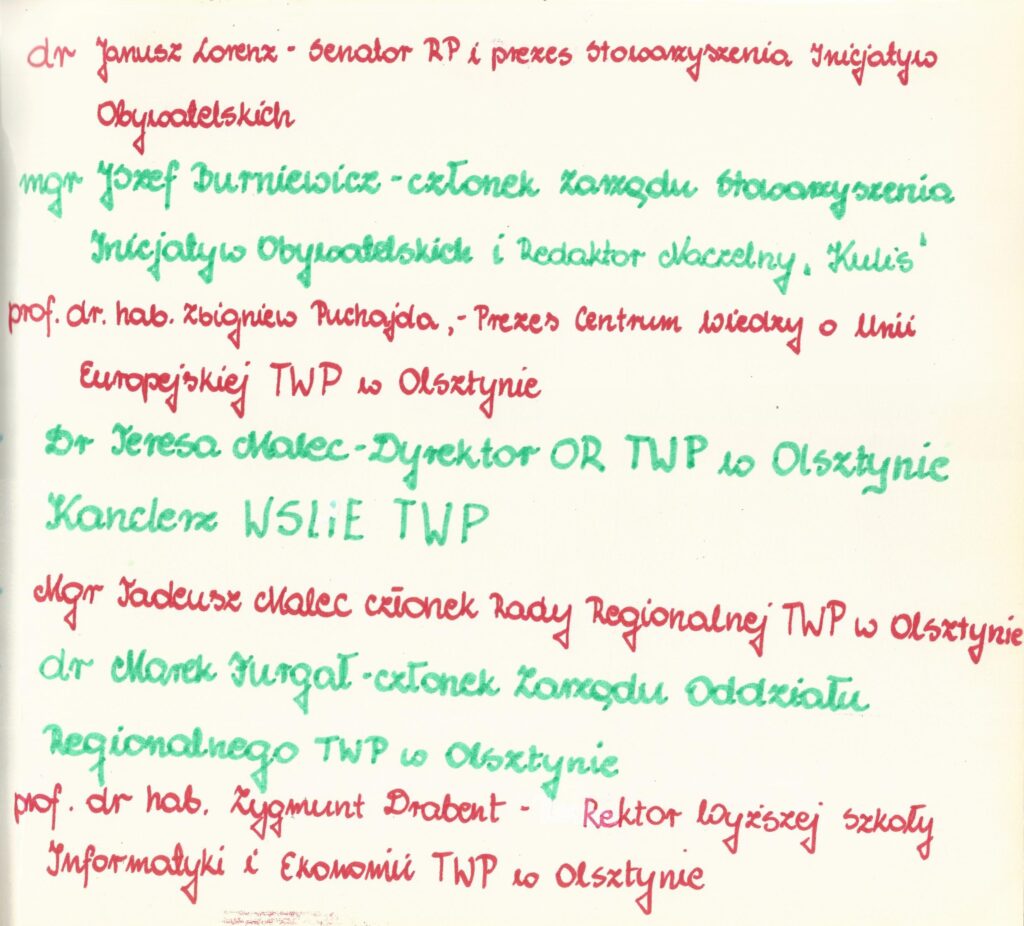 dr Janusz Lorenz - Senator RP i prezes Stowarzyszenia Inicjatyw
Obywatelskich
mgr Józef Burniewicz - członek Zarządu Stowarzyszenia
Inicjatyw Obywatelskich i Redaktor Naczelny „Kulis"
prof. dr. hab. Zbigniew Puchajda, - Prezes Centrum Wiedzy o Unii
Europejskiej TWP w Olsztynie
Dr Teresa Malec - Dyrektor OR TWP w Olsztynie
Kanclerz WSIiE TWP
Mgr Tadeusz Malec członek Rady Regionalnej TWP w Olsztynie
dr Marek Furgał - członek Zarządu Oddziału
Regionalnego TWP w Olsztynie
prof. dr hab. Zygmunt Drabent - Rektor Wyższej Szkoły
Informatyki i Ekonomii TWP w Olsztynie